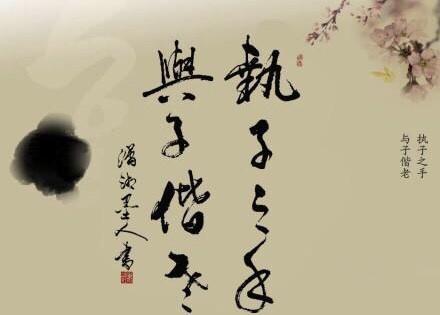 執子之手
與子偕老
瀟湘墨人書
执子之手
与子偕老